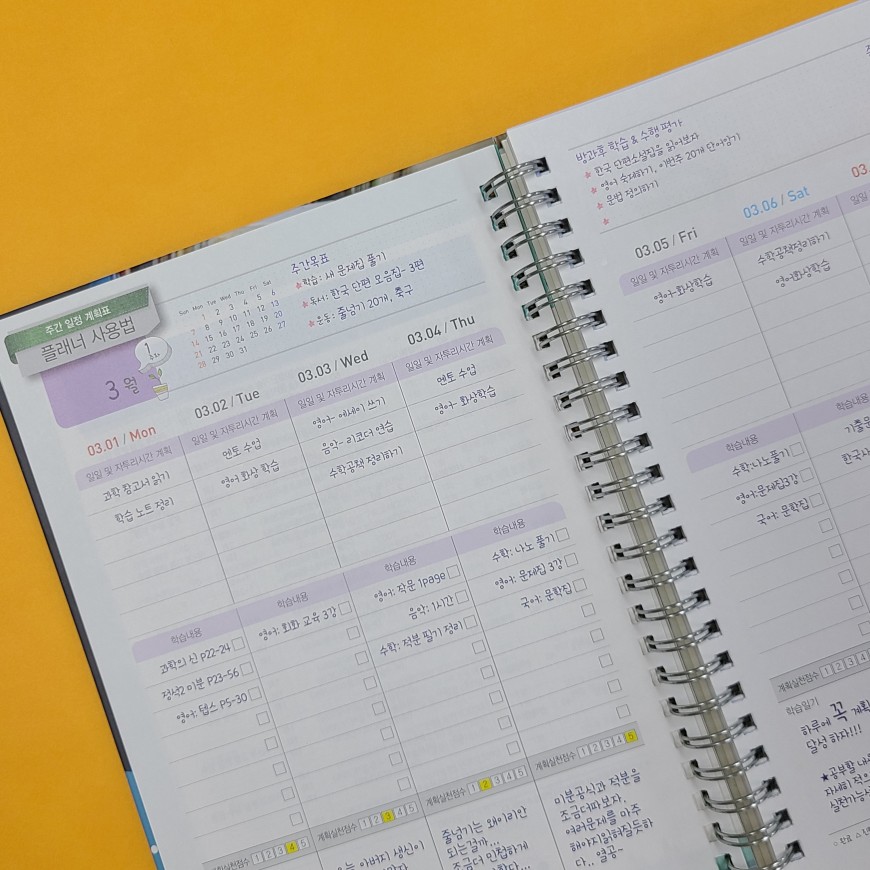 주간 일정 계획표
플래너 사용법
3월
1
주차
Sun Mon Tue Wed Thu Fri Sat
1 2 3 4 5 6
7 8 9 10 11 12 13
14 15 16 17 18 19 20
21 22 23 24 25 26 27
28 29 30 31
주간목표
★학습: 새 문제집 풀기
★독서: 한국 단편 모음집- 3편
★운동: 줄넘기 20개, 축구
03.01 / Mon
일일 및 자투리시간 계획
과학 참고서 읽기
학습 노트 정리
학습내용
과학의 신 p22-24
정석2 미분 P23-56
영어: 텝스 P5-30
계획실천점수 1 2 3 4 5
03.02 / Tue
일일 및 자투리시간 계획
멘토 수업
영어 화상 학습
학습내용
영어: 회화 교육 3강
계획실천점수 1 2 3 4 5
아버지 생신이
03.03 / Wed
일일 및 자투리시간 계획
영어- 에세이 쓰기
음악- 리코더 연습
수학공책 정리하기
학습내용
영어: 작문 1page
음악: 1시간
수학: 적분 필기 정리
계획실천점수 1 2 3 4 5
줄넘기는 왜이리안
되는걸까...
조금더 민첩하게
03.04 / Thu
일일 및 자투리시간 계획
멘토 수업
영어- 화상학습
학습내용
수학: 나노 풀기
영어: 문제집 3강
국어: 문학집
계획실천점수 1 2 3 4 5
미분공식과 적분을
조금더따보자.
여러문제를 마주
해야지읽혀질듯하
다.. 열공~
방과후 학습 & 수행 평가
★ 한국 단편소설집을 읽어보자
★ 영어 숙제하기, 이번주 20개 단어암기
★ 문법 정의하기
★
03.05 / Fri
일일 및 자투리시간 계획
영어-화상학습
학습내용
수학:나노풀기
영어:문제집3강
국어: 문학집
계획실천점수 1 2 3 4
학습일기
하루에 꼭 계획
달성 하자!!!
★공부할 내
자세히 적으
실천가능
03.06 / Sat
일일 및 자투리시간 계획
수학공책정리하기
영어화상학습
학습내용
기출문
한국사
03.
일일 및